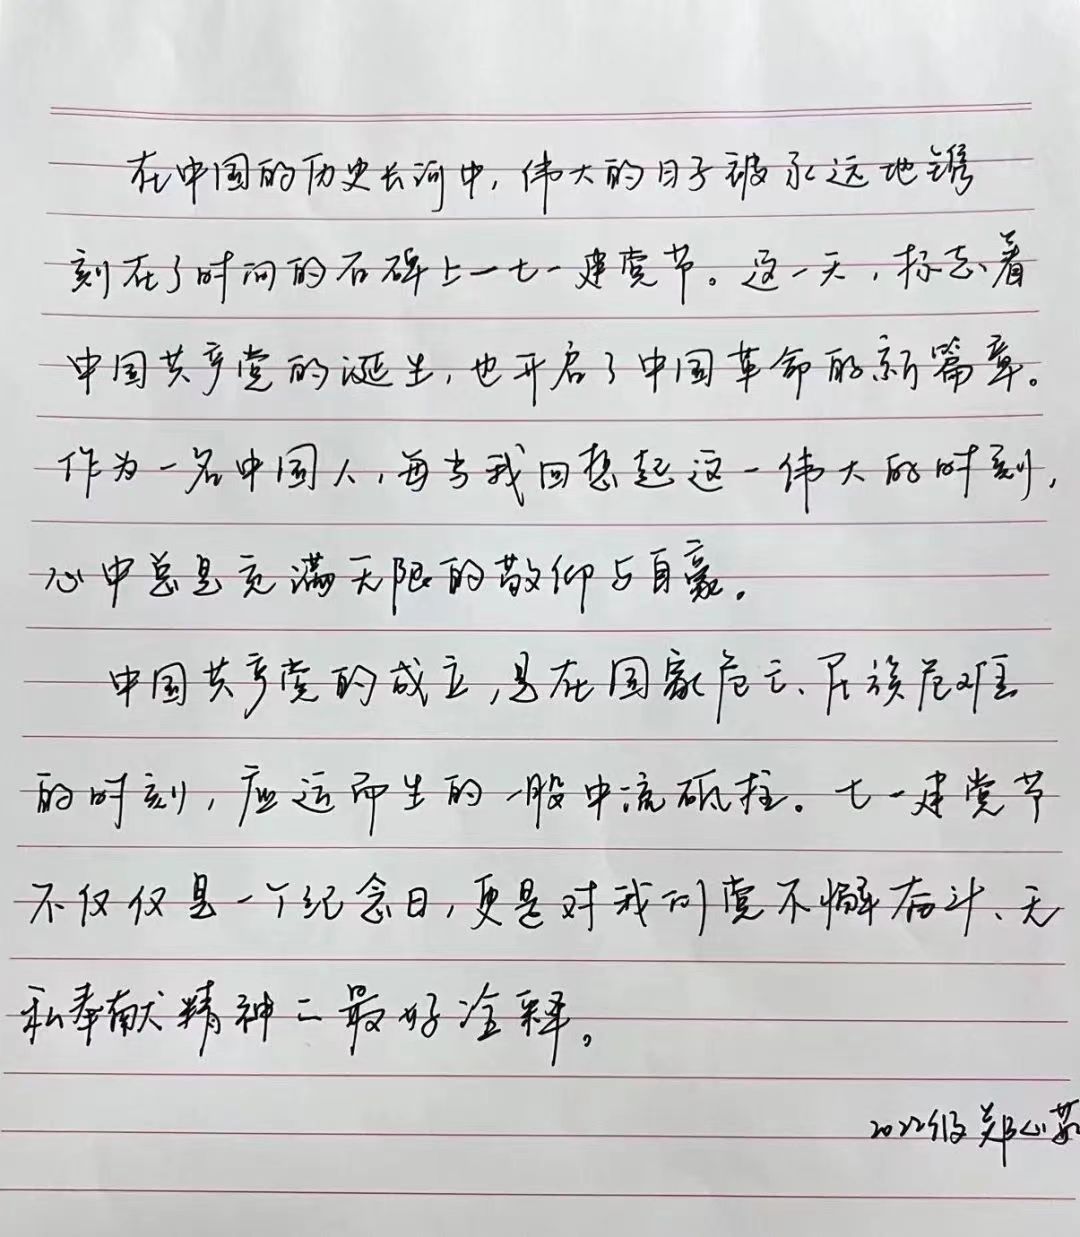 在中国的历史长河中，伟大的日子被永远地镌
刻在了时间的石碑上一七一建党节。这一天，标志着
中国共产党的诞生，也开启了中国革命的新篇章。
作为一名中国人，每当我回想起这一伟大的时刻，
心中总是充满无限的敬仰与自豪。
中国共产党的成立，是在国家危亡、民族危难
的时刻，应运而生的一股中流砥柱。七一建党节
不仅仅是一个纪念日，更是对我们党不懈奋斗、无
私奉献精神二最好诠释。
2022级郑心茹